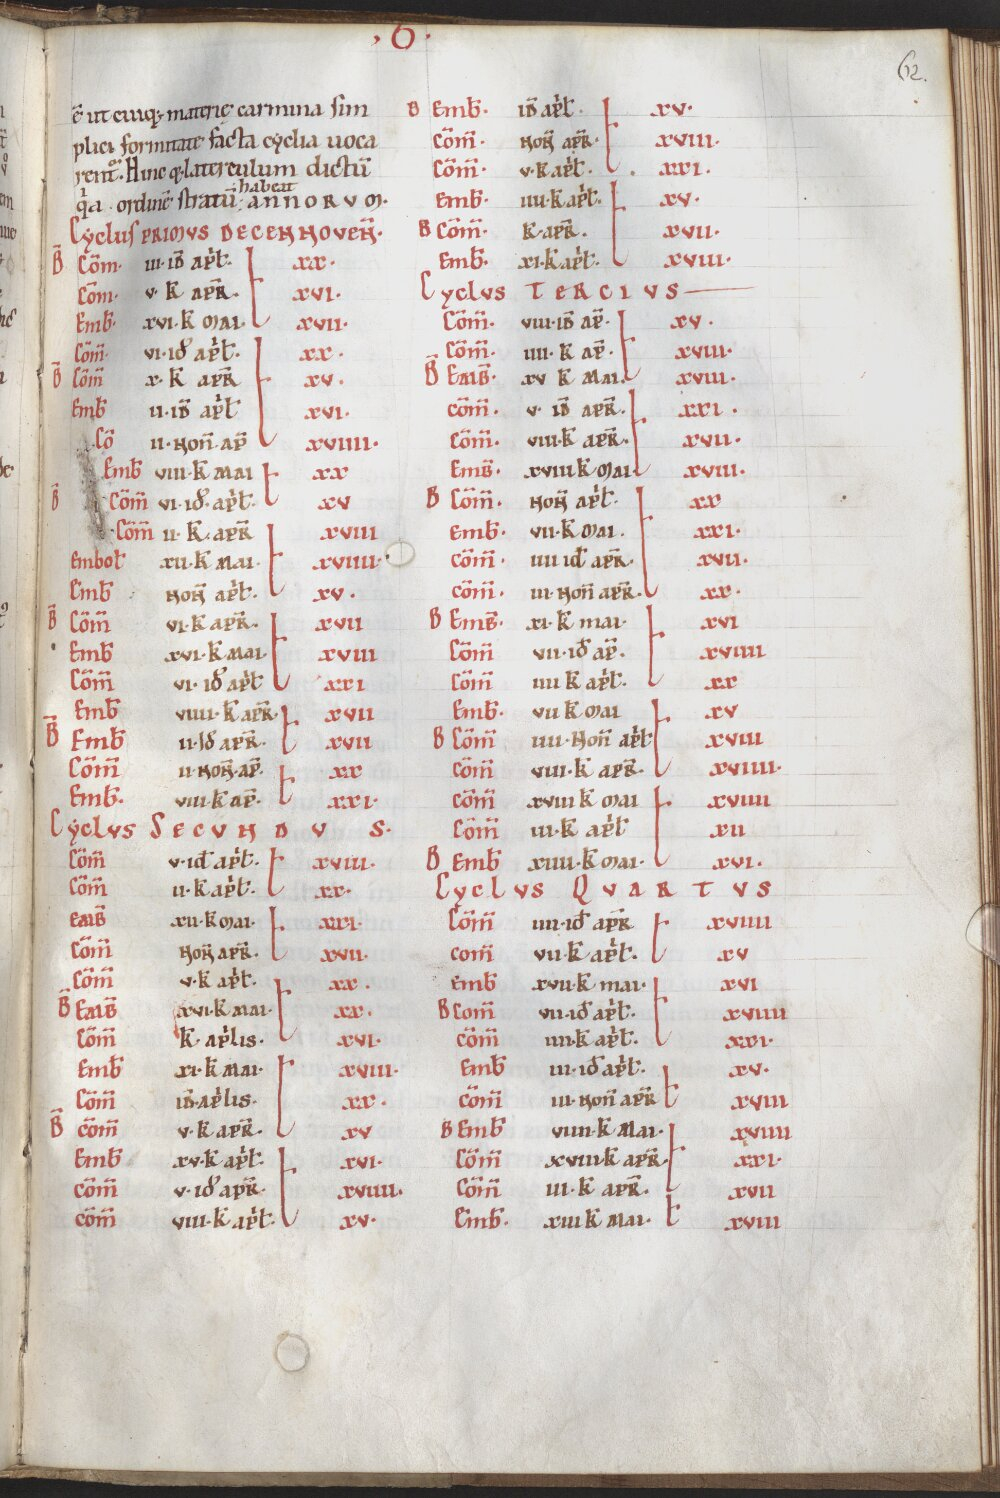 ·6·
62.
ē ut cuiq; materię carmina sim
plici formitate facta cyclia uoca
rent᷑. Hinc q; laterculum dictū
habeat
qͥa ordinē stratū: annorum.
Cyclus primus decennoueñ.
B̄ Com̄· iii·id̄ apr̄l· xx·
Com̄· v·k apr̄· xvi·
Emb̄· xvi·k mai· xvii·
Com̄· vi·id̄ apr̄l· xx·
B̄ Com̄ x·k apr̄ xv·
Emb̄ ii·id̄ apr̄l xvi·
Cō ii·non̄·ap̄ xviiii·
Emb̄ viii·k mai xx
B̄ Com̄ vi·id̄·apr̄l· xv
Com̄ ii·k·apr̄ xviii
Embol̄ xii·k mai· xviiii·
Emb̄ non̄ apr̄l· xv·
B̄ Com̄ vi·k apr̄· xvii
Emb̄ xvi·k mai· xviii
Com̄ vi·id̄ apr̄l xxi
Emb̄ viiii·k apr̄· xvii
B̄ Emb̄ ii·id̄ apr̄· xvii
Com̄ ii·non̄·ap̄· xx
Emb̄· viii·k ap̄· xxi·
Cyclus Secundus·
Com̄ v·id̄ apr̄l· xviii·
Com̄ ii·k apr̄l· xx·
Emb̄ xii·k mai· xxi·
Com̄ non̄ apr̄· xvii·
Com̄ v·k apr̄l· xx·
B̄ Emb̄ xvi·k mai· xx·
Com̄ k aprlis· xvi·
Emb̄ xi·k mai· xviii·
Com̄ id̄·aprlis· xx·
B̄ com̄ v·k apr̄· xv
Emb̄ xv·k apr̄l· xvi·
com̄ v·id̄ apr̄· xviiii·
com̄ viii·k apr̄l· xv·
B Emb̄· id̄ apr̄l· xv·
Com̄· non̄ apr̄· xviii·
Com̄· v·k apr̄l· xxi·
Emb̄· iiii·k apr̄l· xv·
B Com̄· k·apr̄· xvii·
Emb̄· xi·k apr̄l· xviii·
Cyclus Tercius
Com̄· viii·id̄ ap̄· xv·
Com̄· iiii·k ap̄· xviii·
B̄ Emb̄· xv k mai· xviii·
com̄· v·id̄ apr̄· xxi·
Com̄· viii·k apr̄· xvii·
Emb̄· xviii k mai· xviii·
B Com̄· non̄ apr̄l· xx
Emb̄· vii·k mai· xxi·
com̄· iiii id̄ apr̄· xvii·
com̄· iii·non̄ apr̄· xx·
B Emb̄· xi·k mai· xvi
Com̄ vii·id̄ ap̄· xviiii
Com̄ iiii k apr̄l· xx
Emb̄· vii k mai xv
B Com̄ iiii·non̄ apr̄l xviii
Com̄ viii·k apr̄· xviiii·
Com̄ xviii k mai xviiii
Com̄ iii·k apr̄l xii
B Emb̄ xiii·k mai· xvi·
Cyclus Quartus
Com̄ iiii·id̄ apr̄ xviiii
com̄ vii·k apr̄l· xv
Emb̄ xvii·k mai· xvi
B Com̄ vii·id̄ apr̄l· xviiii
com̄ iiii·k apr̄l· xxi·
Emb̄ iii·id̄ apr̄l· xv·
com̄ iii·non̄ apr̄ xviii
B Emb̄ viiii·k mai· xviiii
Com̄ xviii·k apr̄· xxi·
Com̄ iii·k apr̄· xvii
Emb̄· xiii k mai· xviii